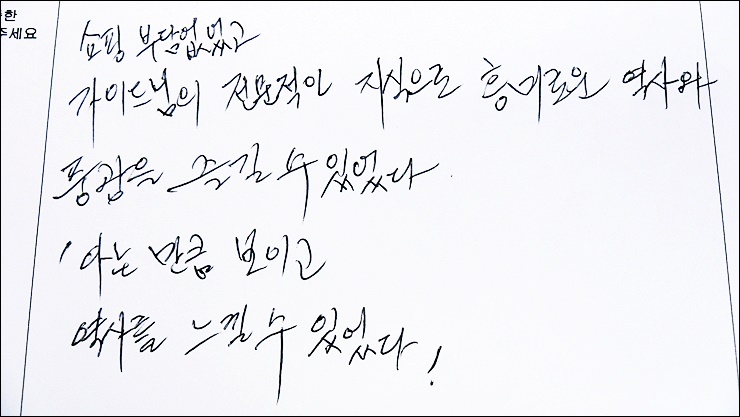 한
주세요
쇼핑 부담없었고
가이드님의 전문적인 지식으로 흥미로운 역사와
풍광을 즐길 수 있었다
'아는 만큼 보이고
역사를 느낄 수 있었다!